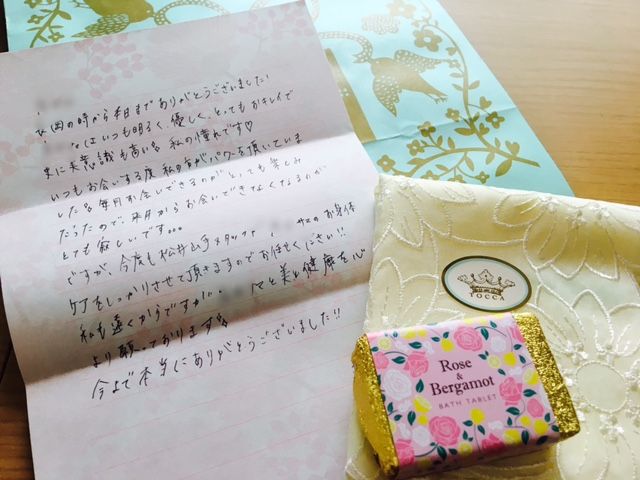 女田の時から本日までありがとうございました
はいつも明るく、優しく、とってもおキレイで
更に美意識も高い為 私の憧れです♡
いつもお会いする度 私の方がパワーを頂いていま
した為 毎月お会いできるのがとっても楽しみ
だったので、来月からお会いできなくなるのが
とても寂しいです。。。
ですが、今度も松井山手スタッフが、のお身体
ケアをしっかりさせて頂きますのでお任せください!!
私も遠くからですが、美と健康を心
より願っております
今まで本当にありがとうございました!!
TOCCA
Rose
&
Bergamot
BATH TABLET